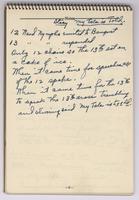 Story My Tale is Told.
12 Wood Nymphs invited to Banquet
13 " " responded
Only 12 chairs so the 13th sat on
a cake of ice.
When it came time for speeches each
of the 12 spoke.
When it came time for the 13th
to speak she rose trembling
and shivering said My tale is told